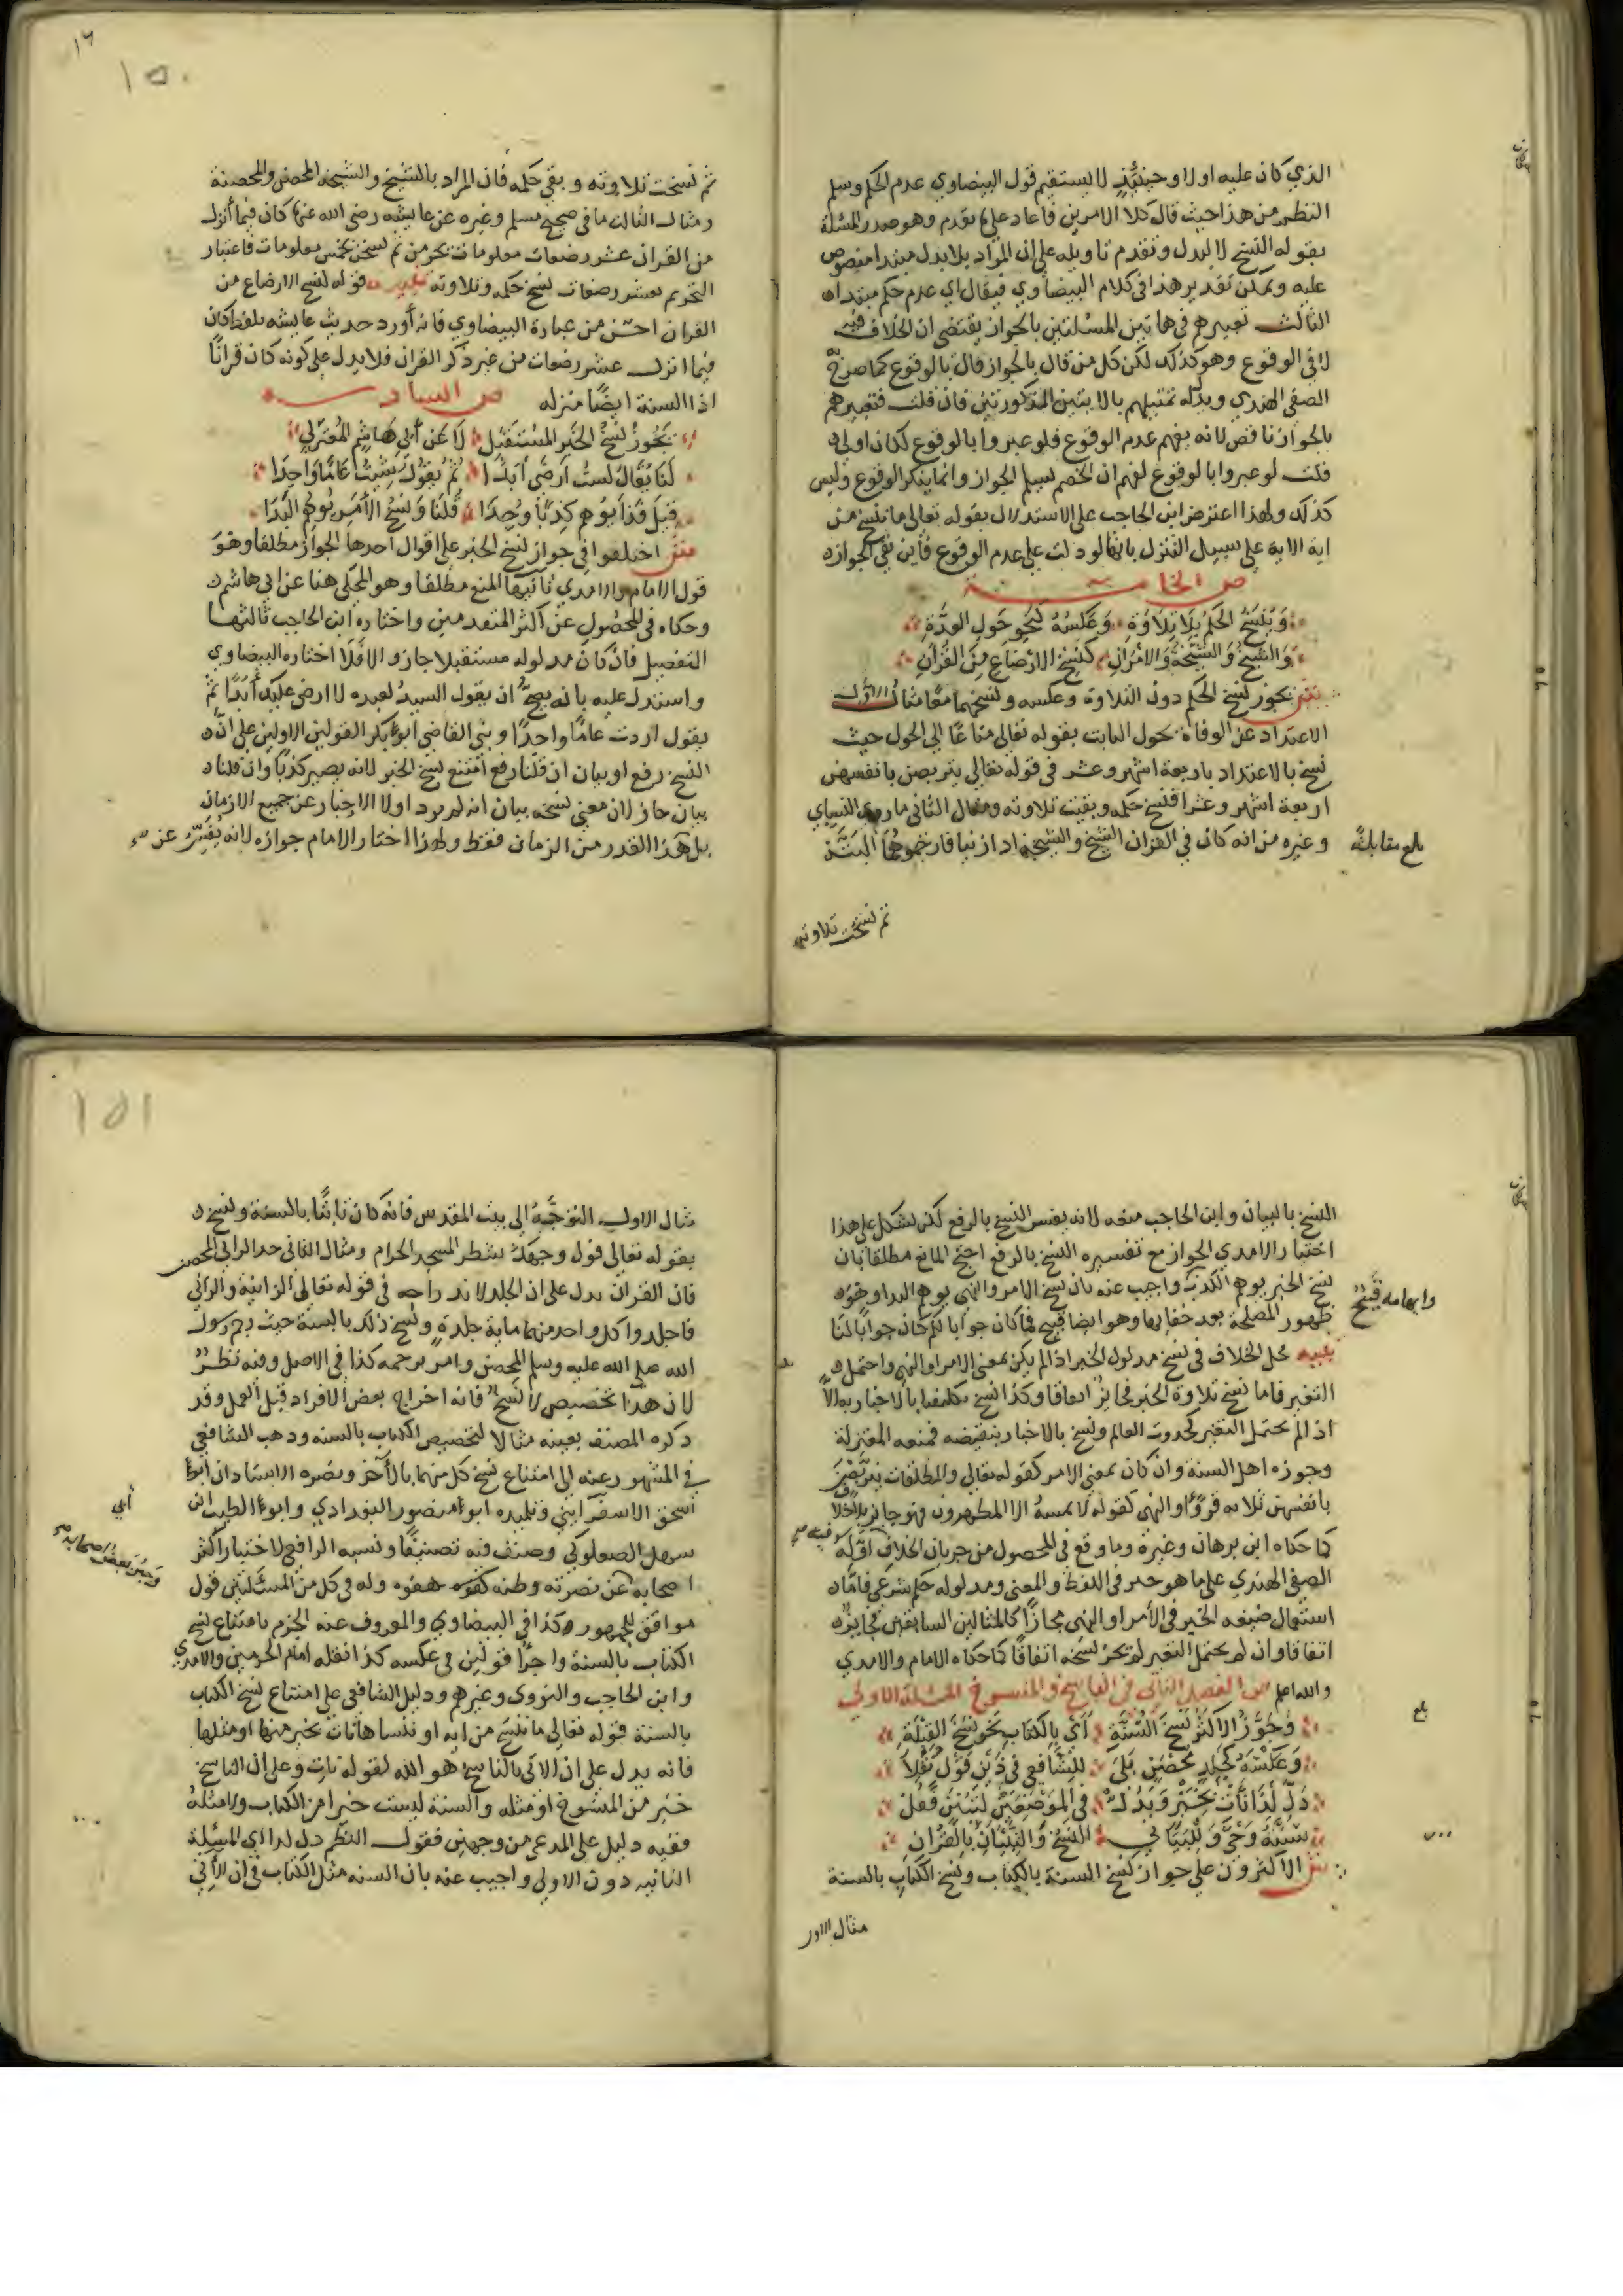 الذي كان عليه اولا وحينئذ لا يستقيم قول البيضاوي عدم الحكم وسلم
النظم من هذا حيث قال كلا الامرين فاعاد على ما تقدم وهو صدر المسئلة
بقوله النسخ لا لبدل وتقدم تاويله على ان المراد بلا بدل مبتدا منصوص
عليه ويمكن تقدير هذا في كلام البيضاوي فيقال اي عدم حكم مبتدا
الثالث تعبيرهم في هاتين المسئلتين بالجواز يقتضي ان الخلاف فيه
لا في الوقوع وهو كذلك لكن كل من قال بالجواز قال بالوقوع كما صرح
الصفي الهندي ويدل تمثيلهم بالايتين المذكورتين فان قلت فتعبيرهم
بالجواز ناقص لانه يفهم عدم الوقوع فلو عبروا بالوقوع لكان اولى
قلت لو عبروا بالوقوع لفهم ان الخصم يسلم الجواز وانما ينكر الوقوع وليس
كذلك ولهذا اعترض ابن الحاجب على الاستدلال بقوله تعالى ما ننسخ من
اية الاية على سبيل التنزل بانها لو دلت على عدم الوقوع فاين نفي الجواز
ص الخامسة
وَيُنسَخُ الحكم بِلا تِلاوَةِ وَعَكسُهُ كَنَحوِ حَولِ العِدَّةِ
وَالشيخُ وَالشيخَةُ وَالامرَانِ كَنَسخِ الارضَاعِ مِنَ القُرآنِ
ش يجوز نسخ الحكم دون التلاوة وعكسه ونسخهما معا مثال الاول
الاعتداد عن الوفاة بحول الثابت بقوله تعالى متاعا الى الحول حيث
نسخ بالاعتداد باربعة اشهر وعشر في قوله تعالى يتربصن بانفسهن
اربعة اشهر وعشرا فنسخ حكمه وبقيت تلاوته ومثال الثاني ما روى النسائي
وغيره من انه كان في القران الشيخ والشيخة اذا زنيا فارجموهما البتة
بلغ مقابلة
ثم نسخت تلاوته
١٦
١٥٠
ثم نسخت تلاوته وبقي حكمه فان المراد بالشيخ والشيخة المحصن والمحصنة
ومثال الثالث ما في صحيح مسلم وغيره عن عايشة رضي الله عنها كان فيما أنزل
من القران عشر رضعات معلومات يحرمن ثم نسخن بخمس معلومات فاعتبار
التحريم بعشر رضعات نسخ حكمه وتلاوته تنبيه قوله نسخ الارضاع من
القران احسن من عبارة البيضاوي فانه أورد حديث عايشة بلفظ كان
فيما انزل عشر رضعات من غير ذكر القران فلا يدل على كونه كان قرانًا
اذ السنة ايضًا منزله ص السادسة
يَجُوزُ نَسخُ الخَبَرِ المُستَقبَلِ لَا عَن أَبي هَاشِمٍ المُعتَزِلي
لَنَا يُقَالُ لَستُ أَرضَى أَبَدًا ثُمَّ يَقُولُ شِئتُ عَامًا وَاحِدَا
قِيلَ فَذَا يُوهِمُ كِذبًا وُجِدَا قُلنَا وَنَسخُ الأَمرِ يُوهِمُ البَدَا
ش اختلفوا في جواز نسخ الخبر على اقوال احدها الجواز مطلقا وهو
قول الامام والامدي ثانيها المنع مطلقا وهو المحكي هنا عن ابي هاشم
وحكاه في المحصول عن اكثر المتقدمين واختاره ابن الحاجب ثالثها
التفصيل فان كان مدلوله مستقبلا جاز والا فَلَا اختاره البيضاوي
واستدل عليه بانه يصح ان يقول السيد لعبده لا ارضى عليك أَبَدًا ثم
يقول اردت عامًا واحدًا وبنى القاضي أبو بكر القولين الاولين على ان
النسخ رفع او بيان ان قلنا رفع امتنع نسخ الخبر لانه يصير كذبًا وان قلنا
بيان جاز لان معنى نسخه بيان انه لم يرد اولا الاخبار عن جميع الازمان
بل هذا القدر من الزمان فقط ولهذا اختار الامام جوازه لانه يُفَسِّر عن
النسخ بالبيان وابن الحاجب منعه لانه يفسر النسخ بالرفع لكن يشكل على هذا
اختيار الامدي الجواز مع تفسيره النسخ بالرفع احتج المانع مطلقا بان
نسخ الخبر يوهم الكذب واجيب عنه بان نسخ الامر والنهي يوهم البدا وهو
وايهامه قبيح
ظهور المصلحة بعد خفايها وهو ايضا قبيح فما كان جوابا لكم كان جوابًا لنا
تنبيه محل الخلاف في نسخ مدلول الخبر اذا لم يكن بمعنى الامر او النهي واحتمل
التغير فاما نسخ تلاوة الخبر فجائز اتفاقا وكذا نسخ تكليفنا بالاخبار به الا
اذا لم يحتمل التغير كحدوث العالم ونسخ بالاخبار بنقيضه فمنعه المعتزلة
وجوزه اهل السنة وان كان بمعنى الامر كقوله تعالى والمطلقات يتربصن
بانفسهن ثلاثة قروء او النهي كقوله لا يمسه الا المطهرون فهو جائز بلا خلاف
كما حكاه ابن برهان وغيره وما وقع في المحصول من جريان الخلاف فيه اوّله
الصفي الهندي على ما هو خبر في اللفظ والمعنى ومدلوله حكم شرعي فاما
استعمال صيغه الخبر في الأمر او النهي مجازا كالمثالين السابقين فجائز
اتفاقا وان لم يحتمل التغير لم يجز نسخه اتفاقًا كما حكاه الامام والامدي
والله اعلم ص الفصل الثاني في الناسخ والمنسوخ المسئلة الاولى
وَجَوَّزَ الاكثرُ نَسخَ السُّنَّةِ أَي بِالكِتَابِ نَحوَ نَسخِ القِبلَةِ
وَعَكسَهُ كَجَلدِ مُحصَنٍ بَلَى لِلشَّافِعي في ذَين قَولٌ نُقِلَا
دَلَّ لِذَا نَأتِ بِخَيرٍ وَبَدَلْ في المَوضِعَينِ لتُبَيِّنَ فَقُل
سُنَّتُهُ وَحيٌ وَلِلبَيَانِ النسخُ وَالتِّبيَانُ بِالقُرآنِ
ش الاكثرون على جواز نسخ السنة بالكتاب ونسخ الكتاب بالسنة
بلغ
مثال الاول
١٥١
مثال الاول التوجُّهُ الى بيت المقدس فانه كان ثابتًا بالسنة ونسخ
بقوله تعالى فول وجهك شطر المسجد الحرام ومثال الثاني حد الزاني المحصن
فان القرآن يدل على ان الجلد لا بد منه في قوله تعالى الزانية والزاني
فاجلدوا كل واحد منهما ماية جلدة ونسخ ذلك بالسنة حيث رجم رسول
الله صلى الله عليه وسلم المحصن وامر برجمه كذا في الاصل وفيه نظر
لان هذا تخصيص لا نسخ فانه اخراج بعض الافراد قبل العمل وقد
ذكره المصنف بعينه مثالا لتخصيص الكتاب بالسنه وذهب الشافعي
في المشهور عنه الى امتناع نسخ كل منهما بالآخر ونصره الاستاذان أبو
اسحق الاسفراييني وتلميذه ابو منصور البغدادي وابو الطيب ابن
أبي
سهل الصعلوكي وصنف فيه تصنيفًا ونسبه الرافعي لاختيار اكثر
وجبن بعض اصحابه
اصحابه عن نصرته وظنه كفوه هفوه وله في كل من المسئلتين قول
موافق للجمهور وكذا في البيضاوي والمعروف عنه الجزم بامتناع نسخ
الكتاب بالسنة واجرا قولين في عكسه كذا نقله امام الحرمين والامدي
وابن الحاجب والنووي وغيرهم ودليل الشافعي على امتناع نسخ الكتاب
بالسنة قوله تعالى ما ننسخ من ايه او ننساها نات بخير منها او مثلها
فانه يدل على ان الاتي بالناسخ هو الله لقوله نات وعلى ان الناسخ
خير من المنسوخ او مثله والسنة ليست خيرا من الكتاب ولا مثله
ففيه دليل على المدعى من وجهين فقول النظم دل لذا اي المسئلة
الثانيه دون الاولى واجيب عنه بان السنه مثل الكتاب في ان الآتي